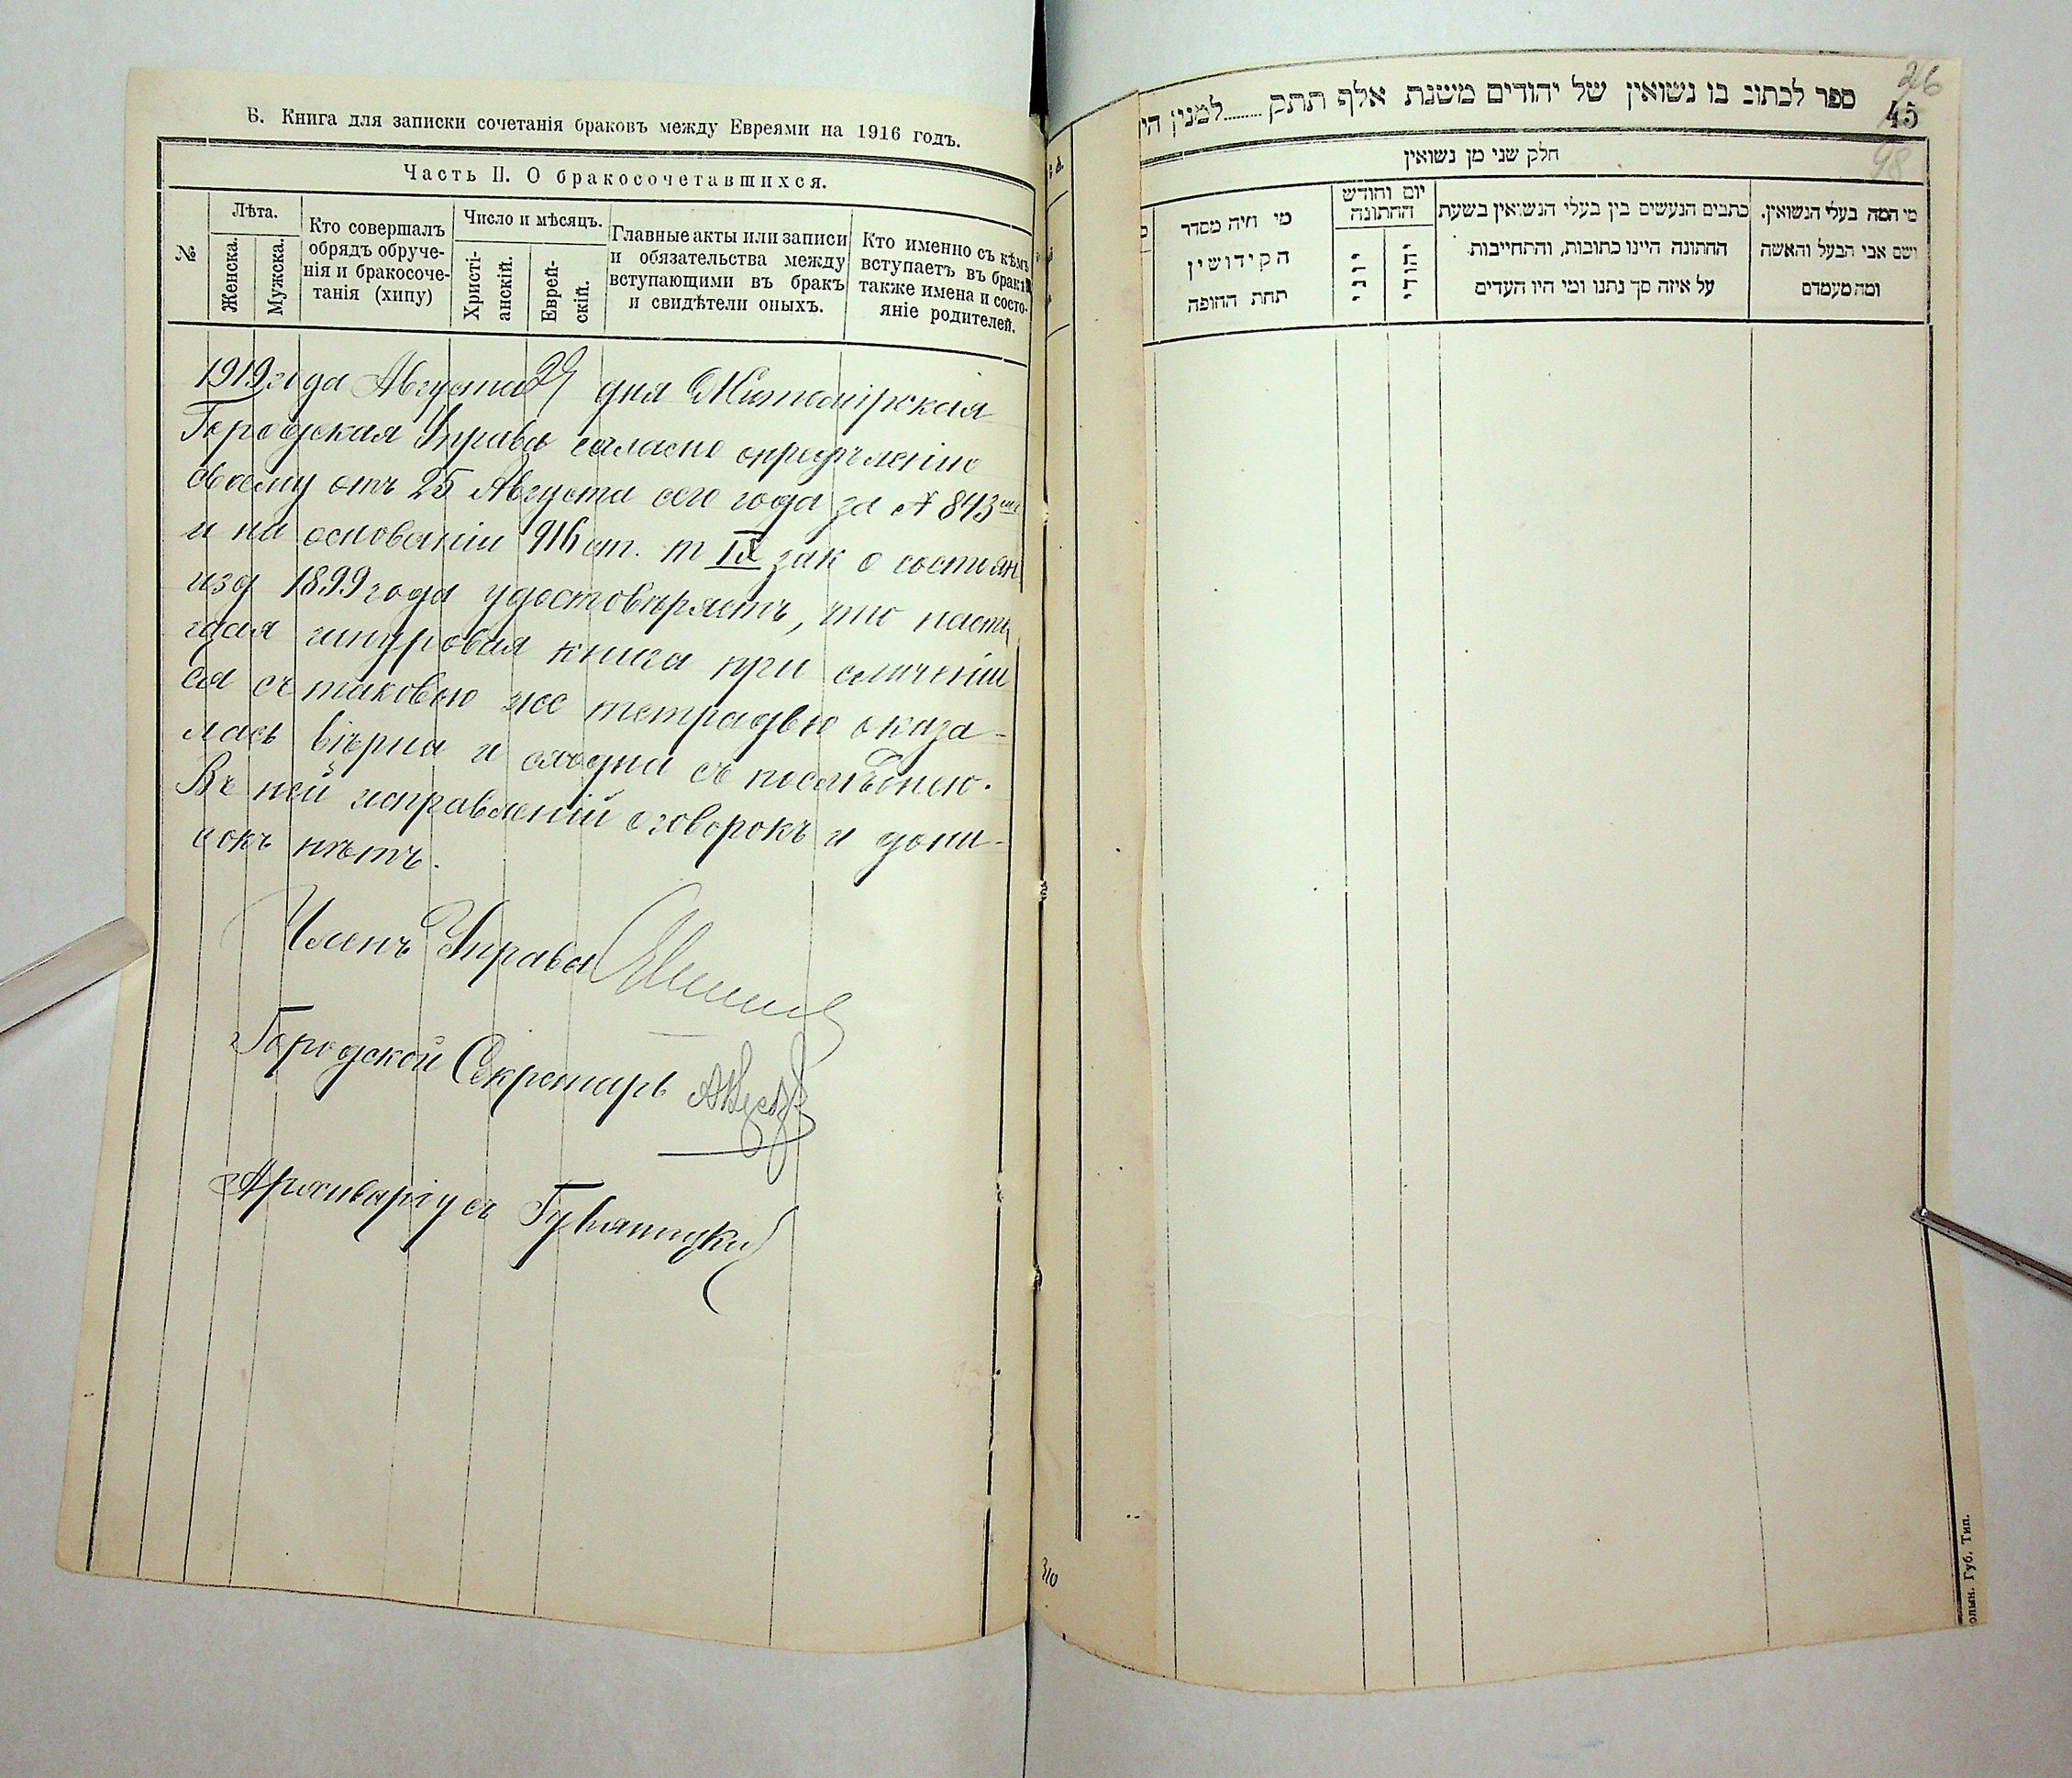 Б. Книга для записки сочетанія браковъ между Евреями на 1916 годъ.
Часть II. О бракосочетавшихся.
№
Лѣта.
Женска.
Мужска.
Кто совершалъ
обрядъ обруче-
нія и бракосоче-
танія (хипу)
Число и мѣсяцъ.
Христі-
анскій.
Еврей-
скій.
Главные акты или записи
и обязательства между
вступающими въ бракъ
и свидѣтели оныхъ.
Кто именно съ кѣмъ
вступаетъ въ бракъ
также имена и состо-
яніе родителей.
1919 года Августа 29 дня Житомірская
Городская Управа согласно опредѣленію
своему отъ 25 Августа сего года за № 843
и на основаніи 916 ст. т IX зак о состоян
изд 1899 года удостовѣряетъ, что насто
шнуровая книга при сличеніи
ея съ таковою же тетрадью оказа-
лась вѣрна и сходна съ послѣднею.
Въ ней исправленій оговорокъ и допи-
сокъ нѣтъ.
Членъ Управы
Городской Секретарь
Архиваріусъ
ספר לכתוב בו נשואין של יהודים משנת אלף תתק ......... למנין היו
26
45
98
חלק שני מן נשואין
מי המה בעלי הנשואין.
ושם אבי הבעל והאשה
ומה מעמדם
כתבים הנעשים בין בעלי הנשואין בשעת
החתונה היינו כתובות, והתחייבות
על איזה סך נתנו ומי היו העדים
יום וחודש
החתונה
יהודי
יוני
מי היה מסדר
הקידושין
תחת החופה
310
олын. Губ. Тип.